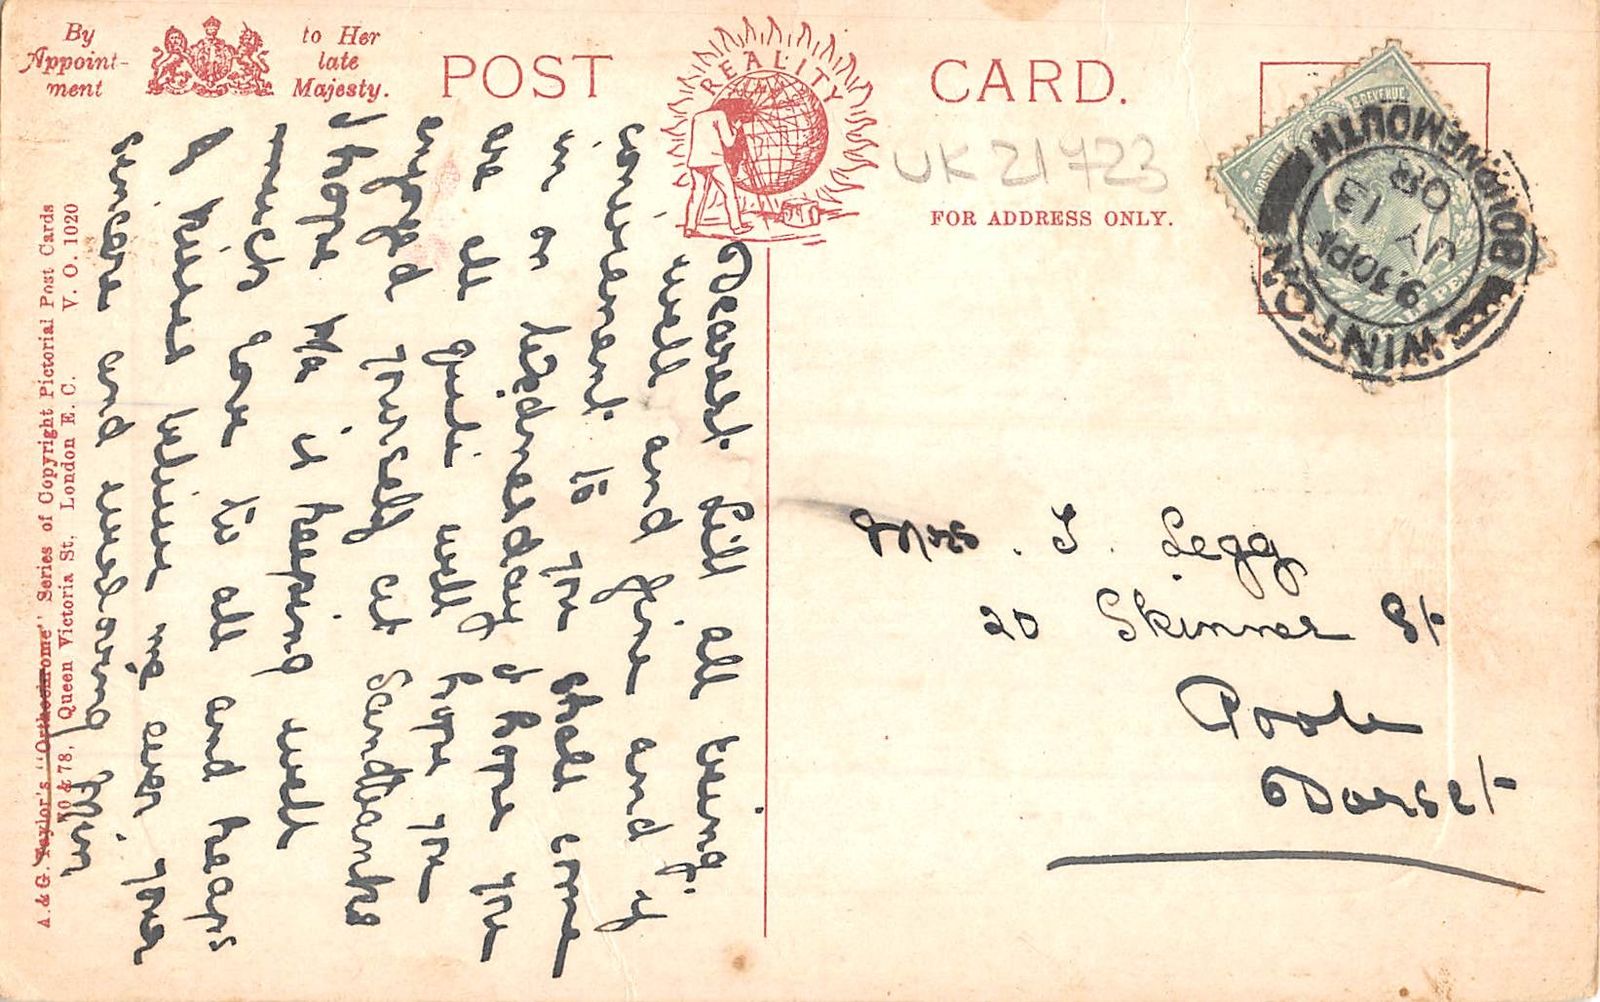 By Appoint-ment
to Her late Majesty.
POST CARD.
REALITY
FOR ADDRESS ONLY.
UK 21723
POSTAGE & REVENUE
WINTON
BOURNEMOUTH
9.30PM
JY 13
08
Dearest Lill all being
well and fine and if
convenient to you shall come
in on Wednesday I hope you
are all quite well hope you
enjoyed yourself at Sandbanks
I hope Ma is keeping well
much love to all and heaps
of kisses believe me ever your
sincere and unloving
Mrs. T. Legg
20 Skinner St
Poole
Dorset
A. & G. Taylor's "Orthochrome" Series of Copyright Pictorial Post Cards
70 & 78, Queen Victoria St. London E. C. V. O. 1020